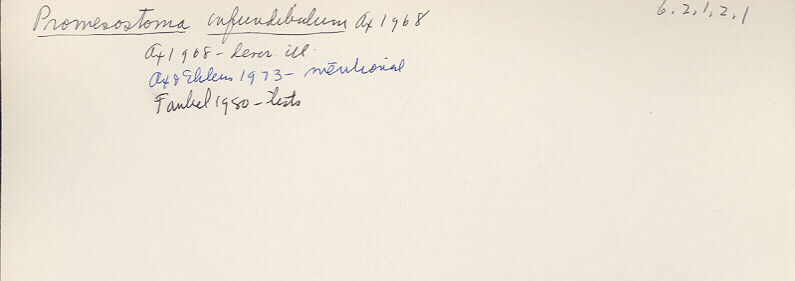 Promesostoma infundibulum Ax 1968
6.2,1,2,1
Ax 1968 - descr. ill.
Ax & Ehlers 1973 - mentioned
Faubel 1980 - lists